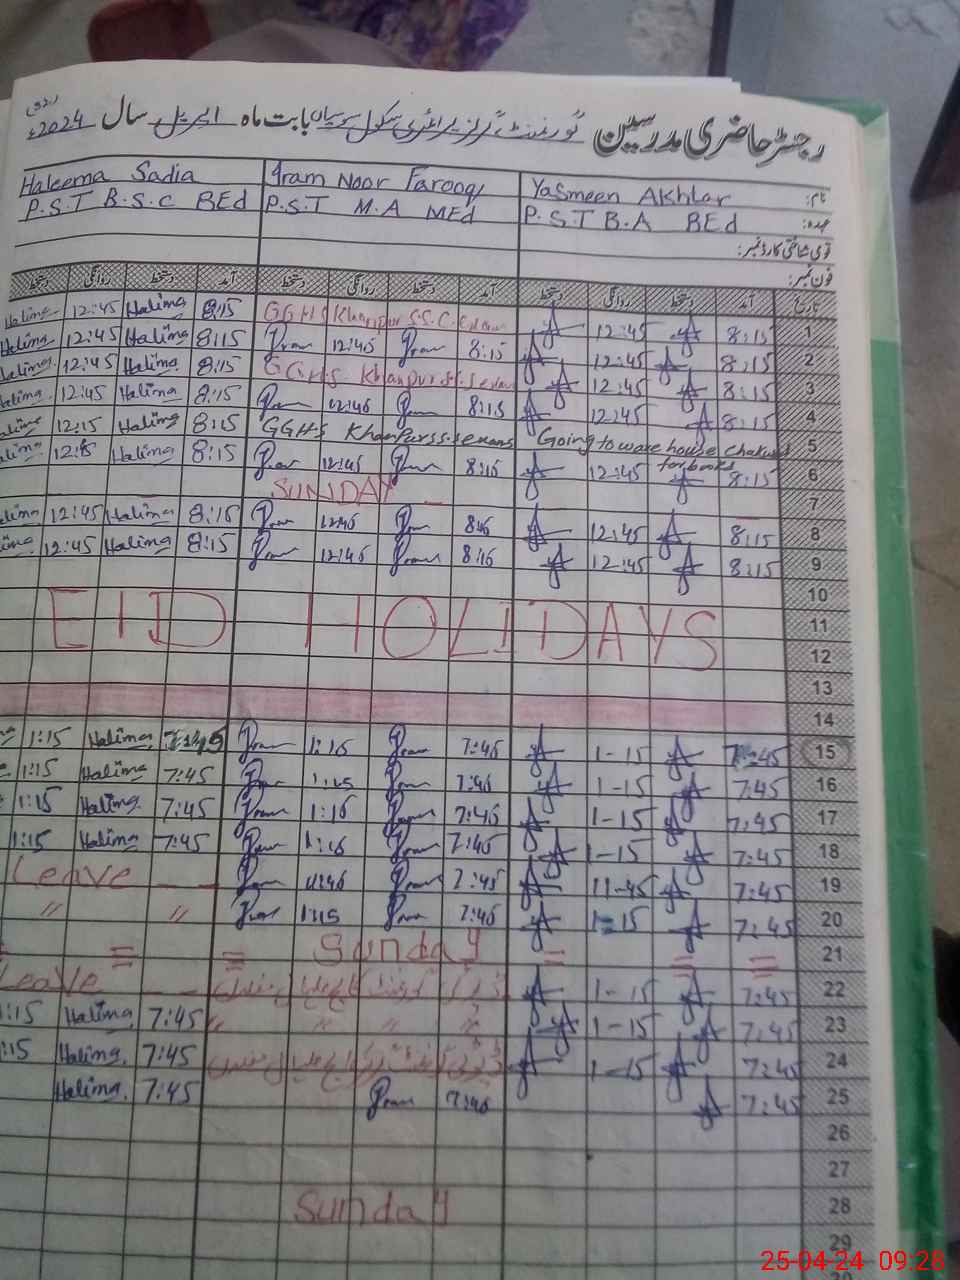 رجسٹر حاضری مدرسین گورنمنٹ گرلز پرائمری سکول بابت ماہ اپریل سال 2024ء
نام: Yasmeen Akhtar Iram Noor Farooq Haleema Sadia
عہدہ: P.S.T B.A BEd P.S.T M.A MEd P.S.T B.S.C BEd
قومی شناختی کارڈ نمبر:
فون نمبر:
تاریخ آمد دستخط روانگی دستخط آمد دستخط روانگی دستخط آمد دستخط روانگی دستخط
1 8:15 12:45 GGHS Khanpur S.S.C Exam 8:15 Halima 12:45 Halima
2 8:15 12:45 8:15 Iram 12:45 Iram 8:15 Halima 12:45 Halima
3 8:15 12:45 GGHS Khanpur 8:15 Halima 12:45 Halima
4 8:15 12:45 8:15 Iram 12:45 Iram 8:15 Halima 12:45 Halima
5 Going to ware house Chakwal for books GGHS Khanpur s.s.c exams 8:15 Halima 12:15 Halima
6 8:15 12:45 8:15 Iram 12:45 Iram 8:15 Halima 12:45 Halima
7 SUNDAY
8 8:15 12:45 8:15 Iram 12:45 Iram 8:15 Halima 12:45 Halima
9 8:15 12:45 8:15 Iram 12:45 Iram 8:15 Halima 12:45 Halima
10
11 EID HOLIDAYS
12
13
14
15 7:45 1-15 7:45 Iram 1:15 Iram 7:45 Halima 1:15
16 7:45 1-15 7:45 Iram 1:15 Iram 7:45 Halima 1:15
17 7:45 1-15 7:45 Iram 1:15 Iram 7:45 Halima 1:15
18 7:45 1-15 7:45 Iram 1:15 Iram 7:45 Halima 1:15
19 7:45 11-45 7:45 Iram 11:45 Iram Leave
20 7:45 1-15 7:45 Iram 1:15 Iram " "
21 = = = Sunday = =
22 7:45 1-15 Leave
23 7:45 1-15 " " " " 7:45 Halima 1:15
24 7:45 1-15 7:45 Halima 1:15
25 7:45 7:45 Iram 7:45 Halima
26
27
28 Sunday
29
25-04-24 09:28